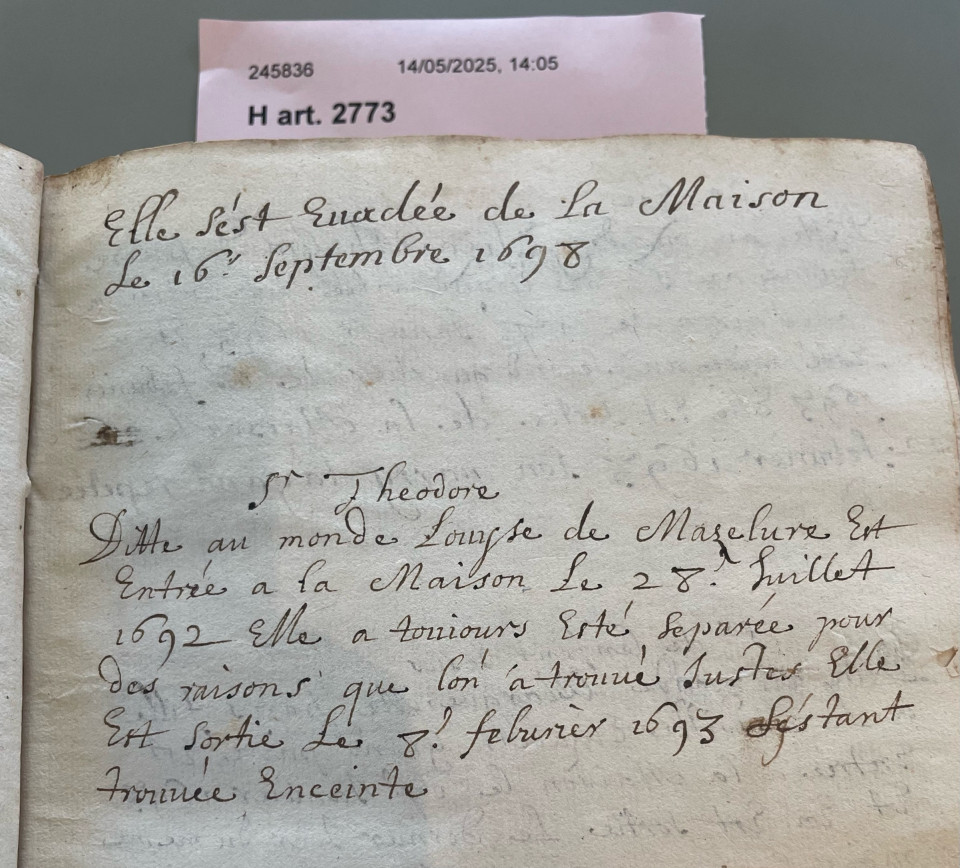 245836 14/05/2025, 14:05
H art. 2773
Elle s'est Euadée de la Maison
Le 16.e Septembre 1698
Sr Theodore
Ditte au monde Louyse de Mazelure Est
Entrée a la Maison Le 28.e Iuillet
1692 Elle a touiours Esté separée pour
des raisons que lón á trouué Iustes Elle
Est sortie Le 8.e feburier 1693 séstant
trouuée Enceinte